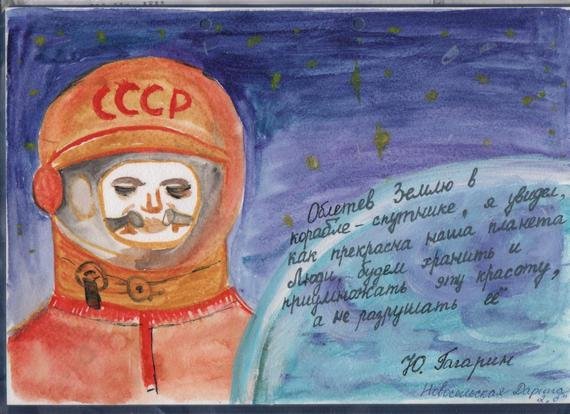 СССР
Облетев Землю в
корабле-спутнике, я увидел,
как прекрасна наша планета
Люди, будем хранить и
приумножать эту красоту,
а не разрушать её"
Ю. Гагарин
Новосельская Дарина